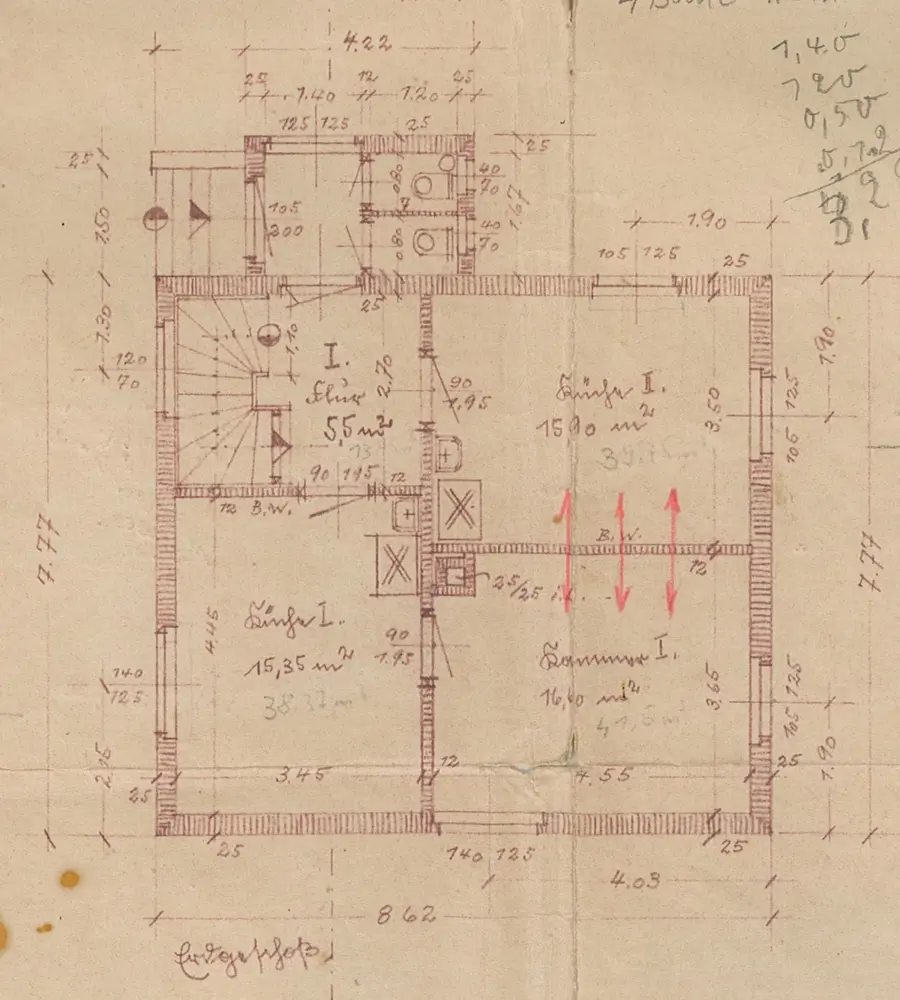 1,40
120
0,50
4.22
25 12 25
1.40 1.20
125 125 25
25
25
40
70
080
7
105
200
1.67
1.50
40
70
080
1.90
105 125
25
25
1.30
1.10
120
70
I.
Flur
5,5 m²
2.70
90
1,95
Küche II.
1590 m²
3.50
1.90
125
105
13
90 195 12
12 B.W.
B.W.
12
25/25 i.L.
7.77
7.77
Küche I.
15,35 m²
4.45
90
1.95
Kammer I.
16,60 m²
3.65
125
105
140
125
2.15
3.45
12
4.55
25
25
1.90
25
140 125
25
4.03
8.62
Erdgeschoß.